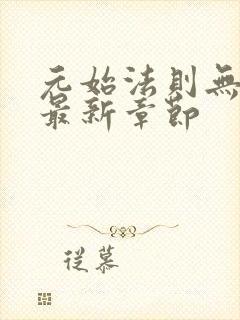 元始法則無
最新章節
從慕